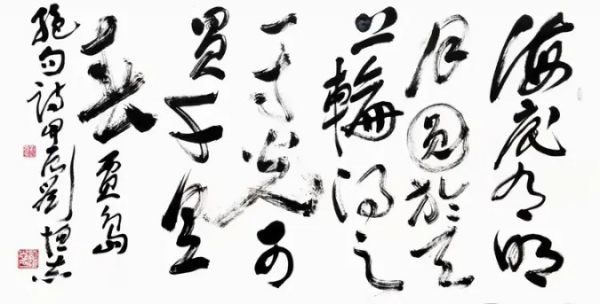 海底有明
月圆於天
上輪得之
一寸光可
買千里
春 賈島
絕句詩甲辰劉